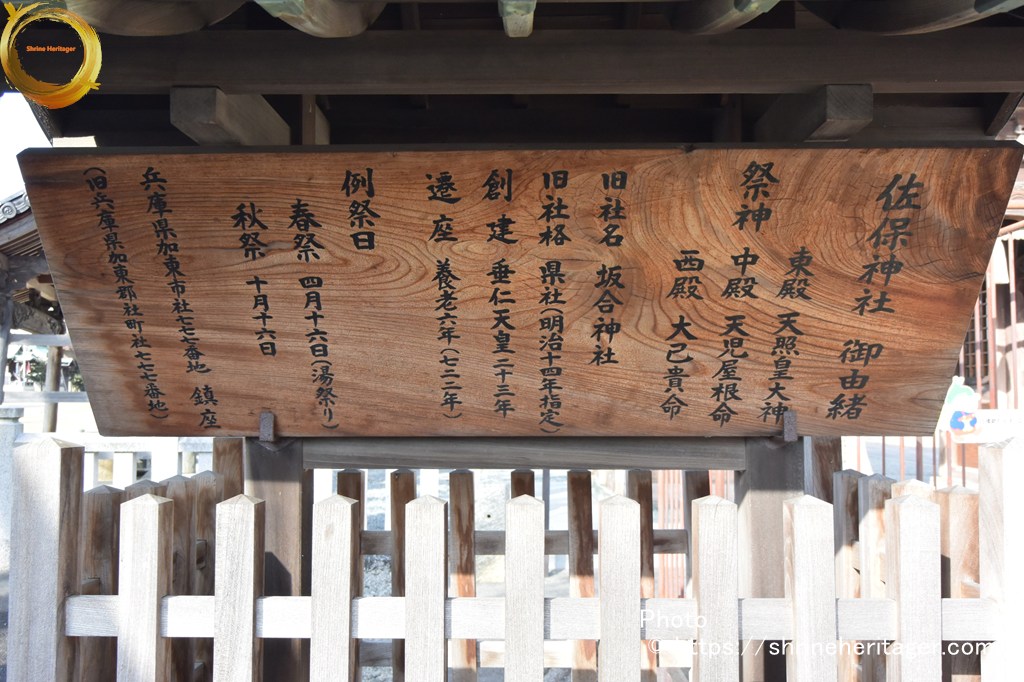 佐保神社 御由緒
祭神
東殿 天照皇大神
中殿 天児屋根命
西殿 大己貴命
旧社名 坂合神社
旧社格 県社(明治十四年指定)
創建 垂仁天皇二十三年
遷座 養老六年(七二二年)
例祭日
春祭 四月十六日(湯祭り)
秋祭 十月十六日
兵庫県加東市社七七番地 鎮座
(旧兵庫県加東郡社町社七七七番地)
Shrine Heritager
Photo
© https://shrineheritager.com